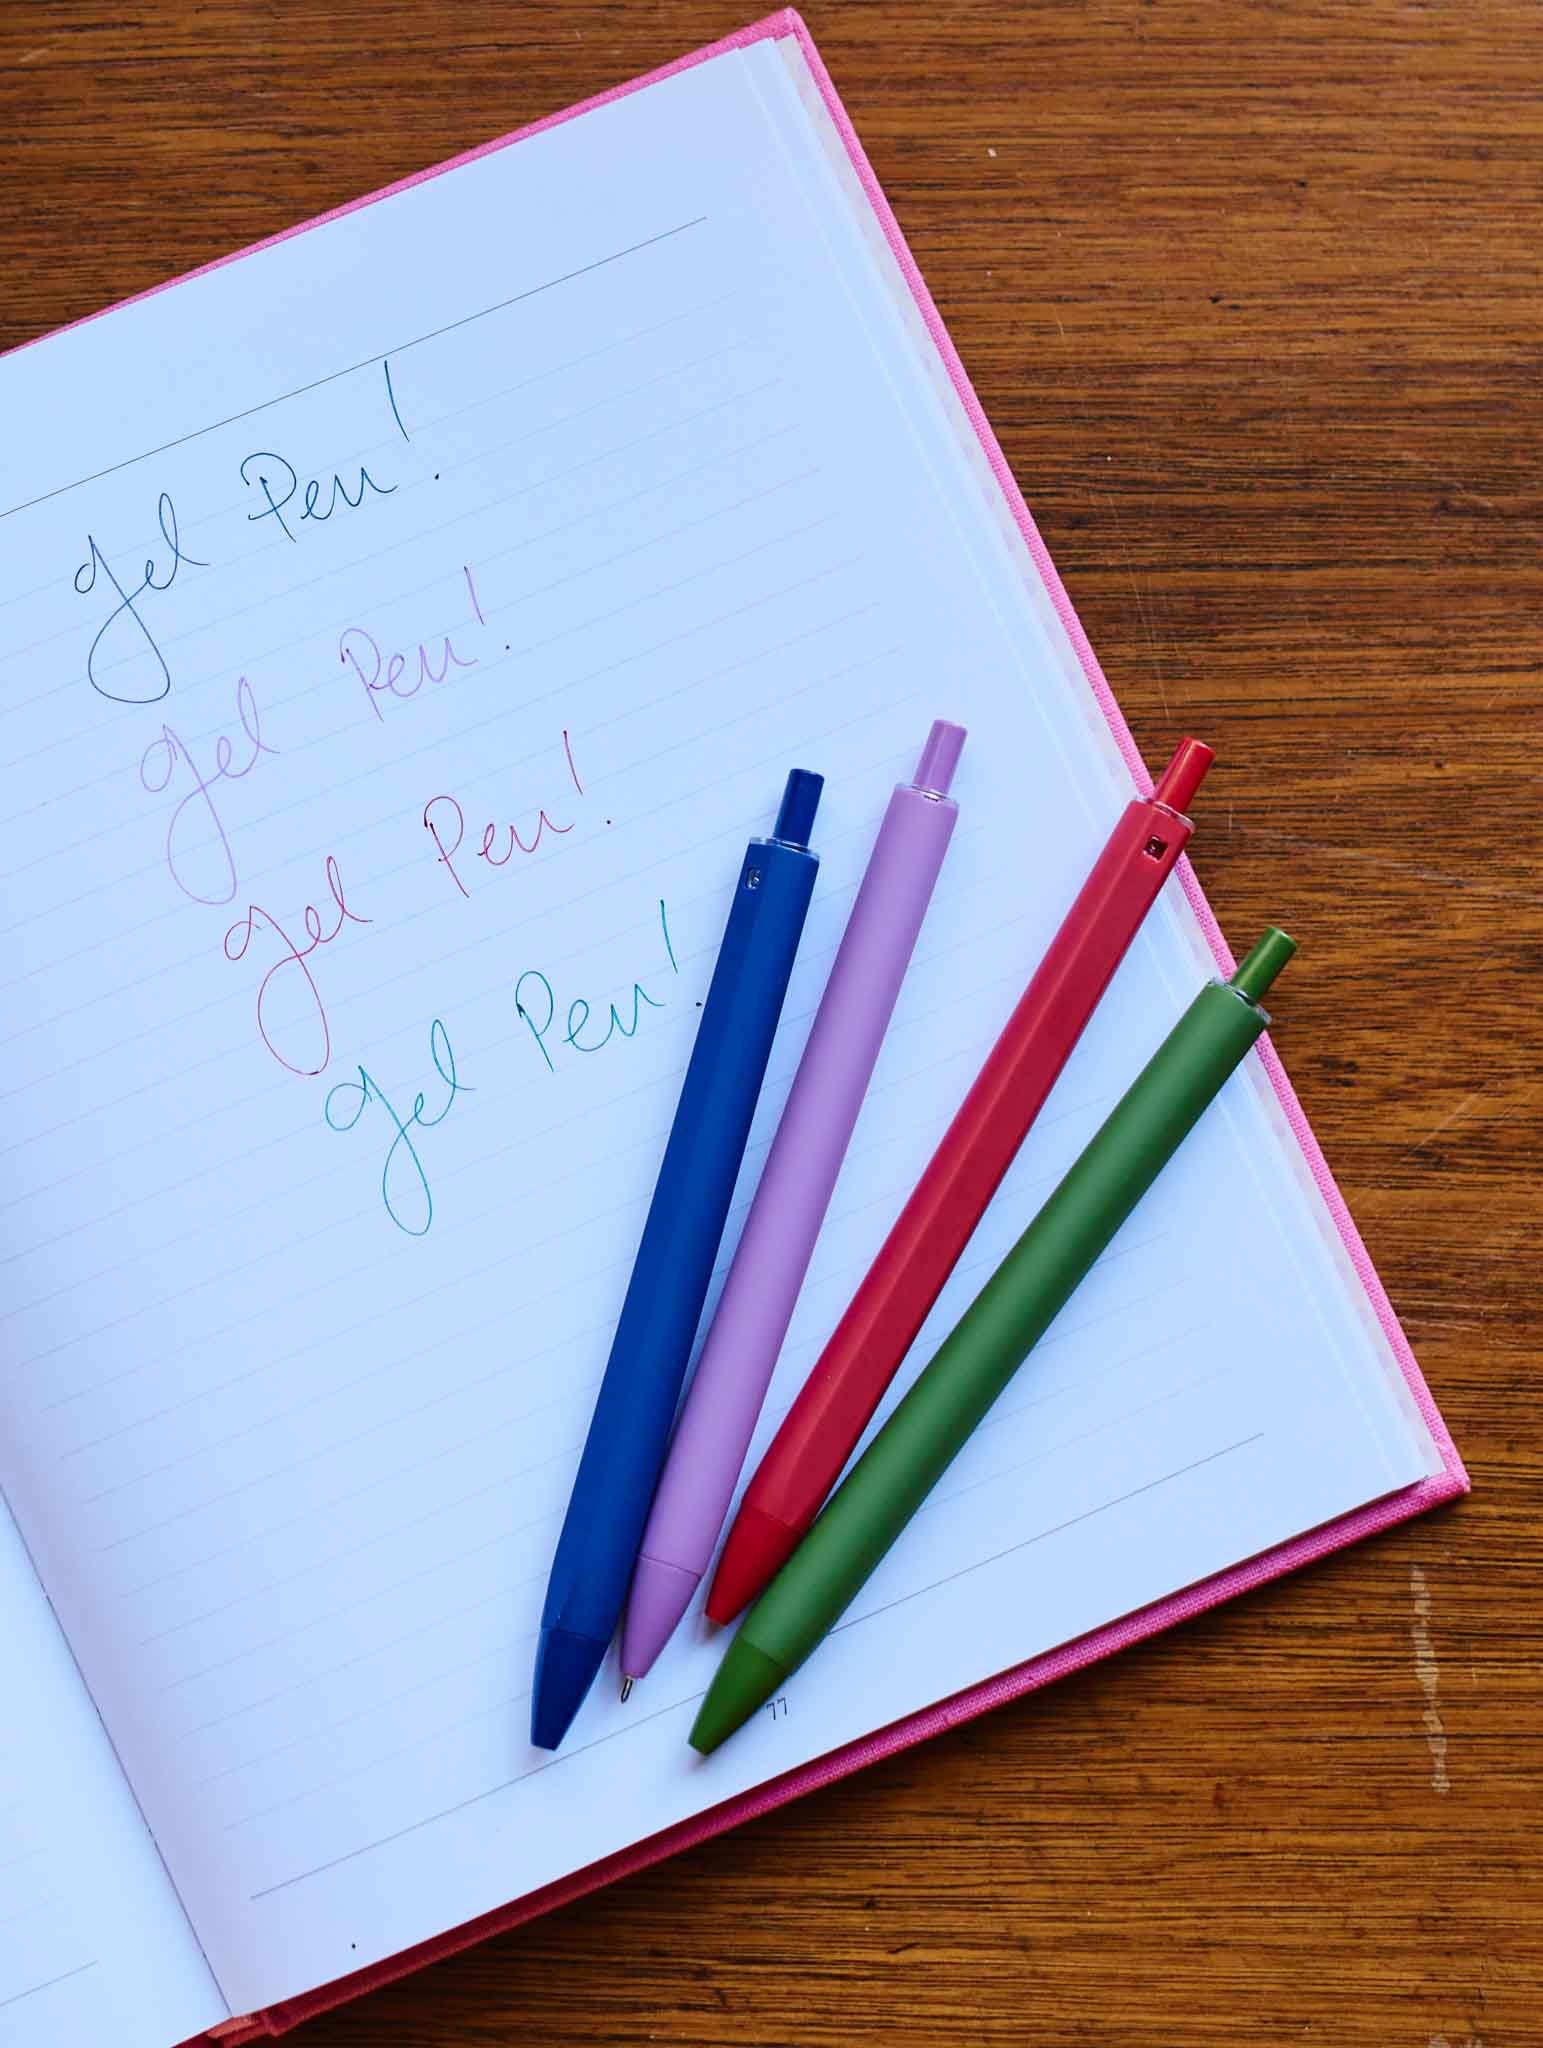 gel Pen!
gel Pen!
gel Pen!
gel Pen!
77